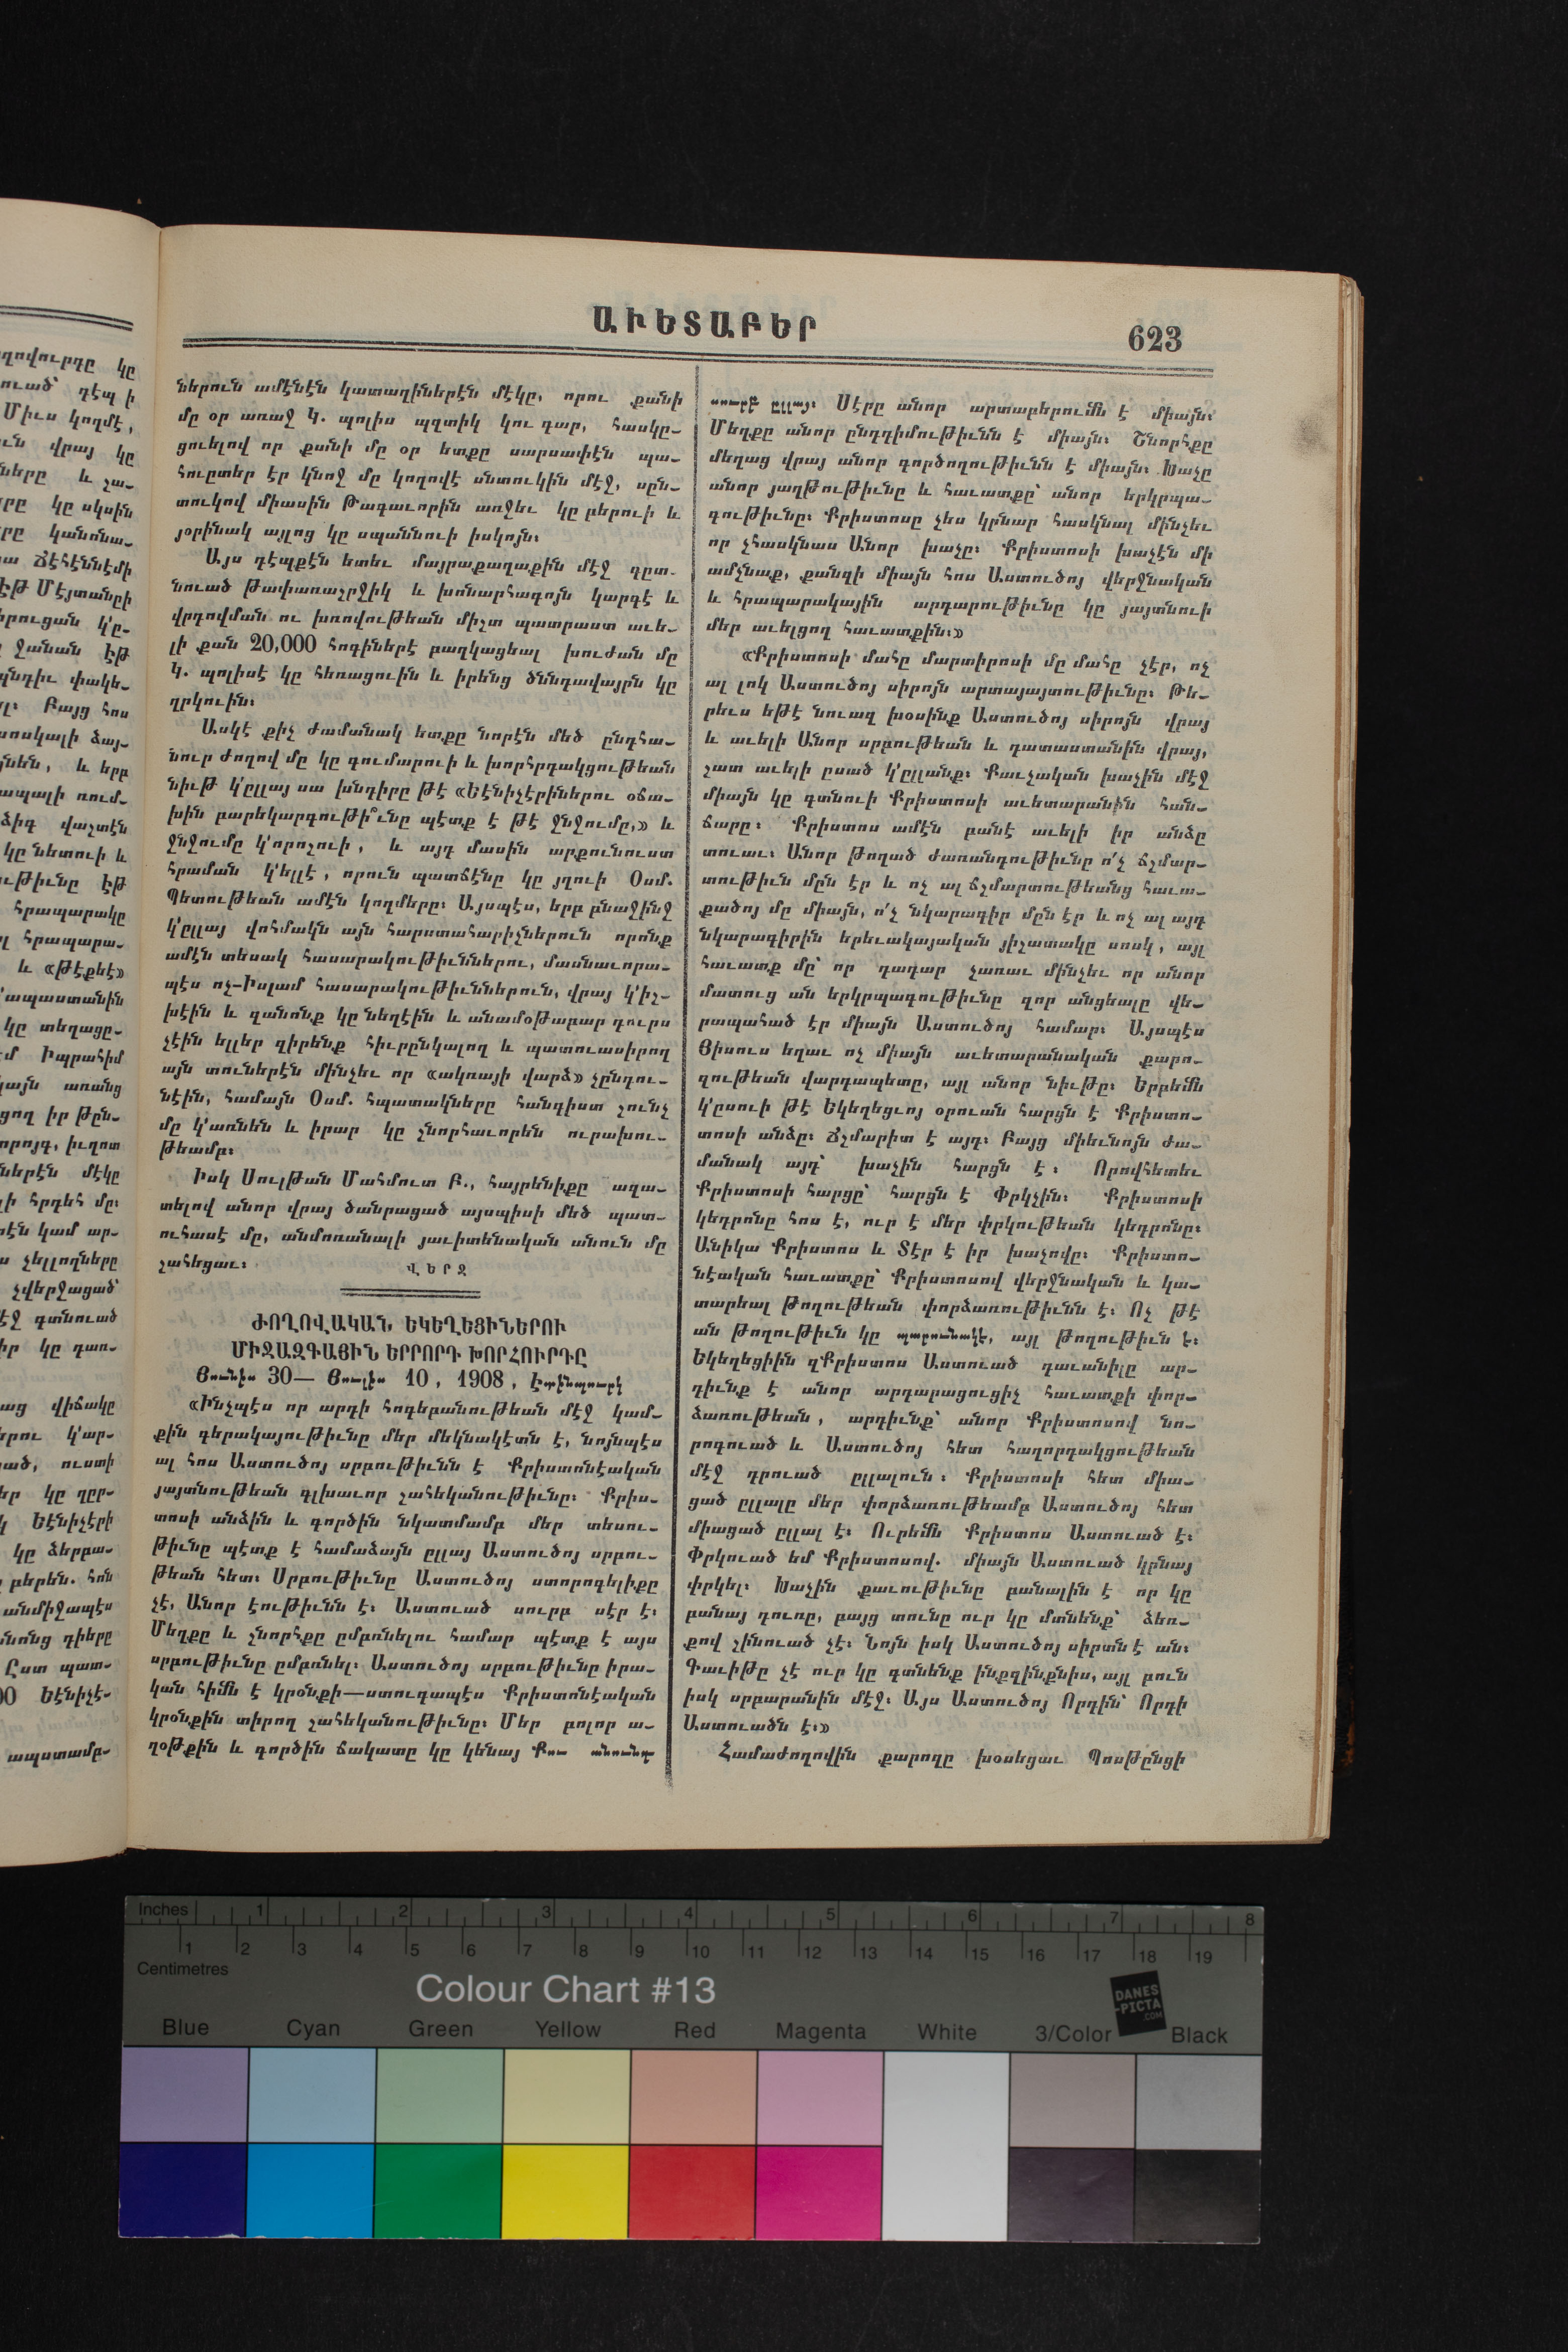 ԱՒԵՏԱԲԵՐ
623
ներուն ամէնէն կատաղիներէն մէկը, որու քանի
մը օր առաջ Կ. պոլիս պզտիկ կու դար, հասկը–
ցուելով որ քանի մը օր ետքը սարսափէն պա–
հուըտեր էր կնոջ մը կողովէ սնտուկին մէջ, սըն–
տուկով միասին Թագաւորին առջեւ կը բերուի և
յօրինակ այլոց կը սպաննուի իսկոյն։
Այս դէպքէն ետեւ մայրաքաղաքին մէջ գըտ–
նուած թափառաշրջիկ և խոնարհագոյն կարգէ և
վրդովման ու խռովութեան միշտ պատրաստ աւե–
լի քան 20,000 հոգիներէ բաղկացեալ խուժան մը
Կ. պոլիսէ կը հեռացուին և իրենց ծննդավայրն կը
ղրկուին։
Ասկէ քիչ ժամանակ ետքը նորէն մեծ ընդհա–
նուր ժողով մը կը գումարուի և խորհրդակցութեան
նիւթ կ՚ըլլայ սա խնդիրը թէ «Եէնիչէրիներու օճա–
խին բարեկարգութի՞ւնը պէտք է թէ ջնջումը,» և
ջնջումը կ՚որոշուի, և այդ մասին արքունուստ
հրաման կ՚ելլէ, որուն պատճէնը կը յղուի Օսմ.
Պետութեան ամէն կողմերը։ Այսպէս, երբ բնաջինջ
կ՚ըլլայ վոհմակն այն հարստահարիչներուն որոնք
ամէն տեսակ հասարակութիւններու, մասնաւորա–
պէս ոչ–Իսլամ հասարակութիւններուն, վրայ կ՚իշ–
խէին և զանոնք կը նեղէին և անամօթաբար դուրս
չէին ելլեր զիրենք հիւրընկալող և պատուասիրող
այն տուներէն մինչեւ որ «ակռայի վարձ» չընդու–
նէին, համայն Օսմ. հպատակները հանգիստ շունչ
մը կ՚առնեն և իրար կը շնորհաւորեն ուրախու–
թեամբ։
Իսկ Սուլթան Մահմուտ Բ., հայրենիքը ազա–
տելով անոր վրայ ծանրացած այսպիսի մեծ պատ–
ուհասէ մը, անմոռանալի յաւիտենական անուն մը
շահեցաւ։
ՎԵՐՋ
ԺՈՂՈՎԱԿԱՆ ԵԿԵՂԵՑԻՆԵՐՈՒ
ՄԻՋԱԶԳԱՅԻՆ ԵՐՐՈՐԴ ԽՈՐՀՈՒՐԴԸ
Յունիս 30— Յուլիս 10, 1908, Էտինպուրկ
«Ինչպէս որ արդի հոգեբանութեան մէջ կամ–
քին գերակայութիւնը մեր մեկնակէտն է, նոյնպէս
ալ հոս Աստուծոյ սրբութիւնն է Քրիստոնէական
յայտնութեան գլխաւոր շահեկանութիւնը։ Քրիս–
տոսի անձին և գործին նկատմամբ մեր տեսու–
թիւնը պէտք է համաձայն ըլլայ Աստուծոյ սրբու–
թեան հետ։ Սրբութիւնը Աստուծոյ ստորոգելիքը
չէ, Անոր էութիւնն է։ Աստուած սուրբ սէր է։
Մեղքը և շնորհքը ըմբռնելու համար պէտք է այս
սրբութիւնը ըմբռնել։ Աստուծոյ սրբութիւնը իրա–
կան հիմն է կրօնքի—ստուգապէս Քրիստոնէական
կրօնքին տիրող շահեկանութիւնը։ Մեր բոլոր ա–
ղօթքին և գործին ճակատը կը կենայ Քու անունդ
սուրբ ըլլայ։ Սէրը անոր արտաբերումն է միայն։
Մեղքը անոր ընդդիմութիւնն է միայն։ Շնորհքը
մեղաց վրայ անոր գործողութիւնն է միայն։ Խաչը
անոր յաղթութիւնը և հաւատքը՝ անոր երկրպա–
գութիւնը։ Քրիստոսը չես կրնար հասկնալ մինչեւ
որ չհասկնաս Անոր խաչը։ Քրիստոսի խաչէն մի
ամչնաք, քանզի միայն հոս Աստուծոյ վերջնական
և հրապարակային արդարութիւնը կը յայտնուի
մեր աւելցող հաւատքին։»
«Քրիստոսի մահը մարտիրոսի մը մահը չէր, ոչ
ալ լոկ Աստուծոյ սիրոյն արտայայտութիւնը։ Թե–
րեւս եթէ նուազ խօսինք Աստուծոյ սիրոյն վրայ
և աւելի Անոր սրբութեան և դատաստանին վրայ,
շատ աւելի ըսած կ՚ըլլանք։ Քաւչական խաչին մէջ
միայն կը գտնուի Քրիստոսի աւետարանին հան–
ճարը։ Քրիստոս ամէն բանէ աւելի իր անձը
տուաւ։ Անոր թողած ժառանգութիւնը ո՛չ ճշմար–
տութիւն մըն էր և ոչ ալ ճշմարտութեանց հաւա–
քածոյ մը միայն, ո՛չ նկարագիր մըն էր և ոչ ալ այդ
նկարագիրին երեւակայական յիշատակը սոսկ, այլ
հաւատք մը՝ որ դադար չառաւ մինչեւ որ անոր
մատուց ան երկրպագութիւնը զոր անցեալը վե–
րապահած էր միայն Աստուծոյ համար։ Այսպէս
Յիսուս եղաւ ոչ միայն աւետարանական քարո–
զութեան վարդապետը, այլ անոր նիւթը։ Երբեմն
կ՚ըսուի թէ Եկեղեցւոյ օրուան հարցն է Քրիստո–
տոսի անձը։ Ճշմարիտ է այդ։ Բայց միեւնոյն ժա–
մանակ այդ՝ խաչին հարցն է։ Որովհետեւ
Քրիստոսի հարցը՝ հարցն է Փրկչին։ Քրիստոսի
կեդրոնը հոս է, ուր է մեր փրկութեան կեդրոնը։
Անիկա Քրիստոս և Տէր է իր խաչովը։ Քրիստո–
նէական հաւատքը՝ Քրիստոսով վերջնական և կա–
տարեալ թողութեան փորձառութիւնն է։ Ոչ թէ
ան թողութիւն կը պարունակէ, այլ թողութիւն է։
Եկեղեցիին զՔրիստոս Աստուած դաւանիլը ար–
դիւնք է անոր արդարացուցիչ հաւատքի փոր–
ձառութեան, արդիւնք՝ անոր Քրիստոսով նո–
րոգուած և Աստուծոյ հետ հաղորդակցութեան
մէջ դրուած ըլլալուն։ Քրիստոսի հետ միա–
ցած ըլլալը մեր փորձառութեամբ Աստուծոյ հետ
միացած ըլլալ է։ Ուրեմն Քրիստոս Աստուած է։
Փրկուած եմ Քրիստոսով. միայն Աստուած կրնայ
փրկել։ Խաչին քաւութիւնը բանալին է որ կը
բանայ դուռը, բայց տունը ուր կը մտնենք՝ ձեռ–
քով շինուած չէ։ Նոյն իսկ Աստուծոյ սիրտն է ան։
Գաւիթը չէ ուր կը գտնենք ինքզինքնիս, այլ բուն
իսկ սրբարանին մէջ։ Այս Աստուծոյ Որդին՝ Որդի
Աստուածն է։»
Համաժողովին քարոզը խօսեցաւ Պոսթընցի
Inches 1 2 3 4 5 6 7 8
1 2 3 4 5 6 7 8 9 10 11 12 13 14 15 16 17 18 19
Centimetres
Colour Chart #13
DANES
-PICTA
.COM
Blue Cyan Green Yellow Red Magenta White 3/Color Black